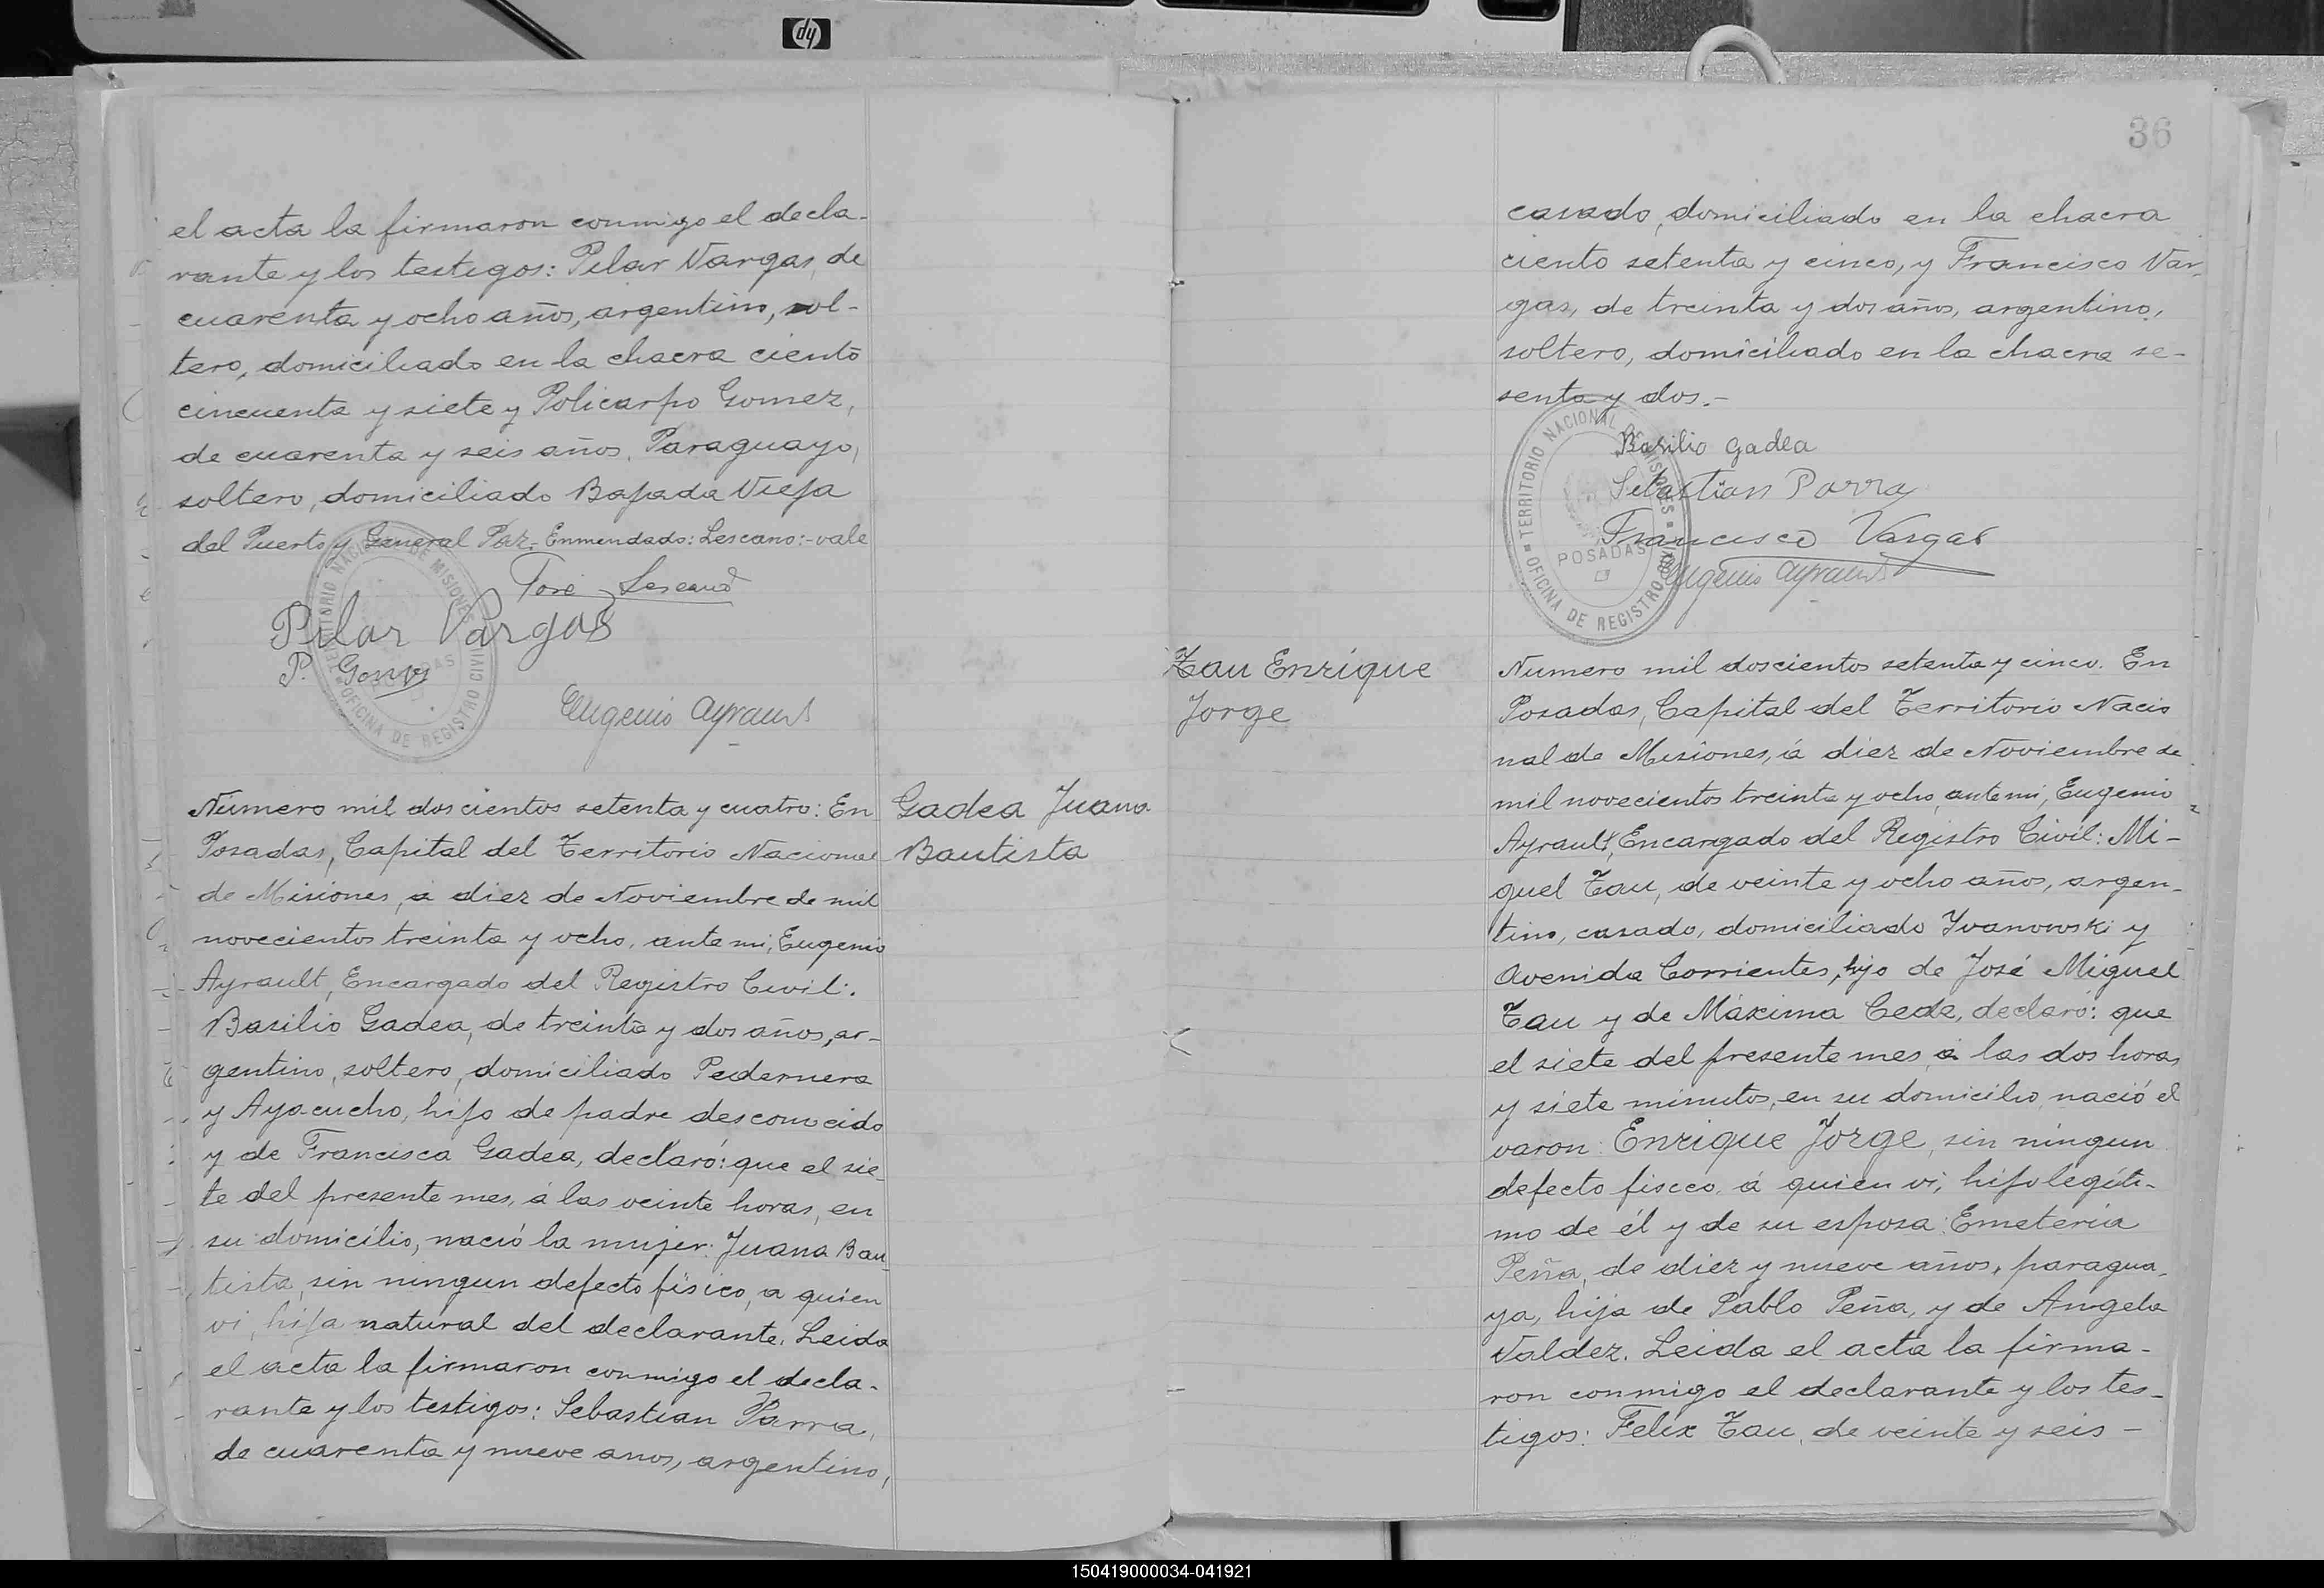 hp
el acta la firmaron conmigo el decla-
rante y los testigos: Pilar Vargas, de
cuarenta y ocho años, argentino, sol-
tero, domiciliado en la chacra ciento
cincuenta y siete y Policarpo Gomez,
de cuarenta y seis años, Paraguayo,
soltero, domiciliado Bajada Vieja
del Puerto y General Paz.- Enmendado: Lescano:-vale
José Lescano
Pilar Vargas
P. Gomez
Eugenio Ayrault
TERRITORIO NACIONAL DE MISIONES
POSADAS
OFICINA DE REGISTRO CIVIL
Gadea Juana
Bautista
Número mil doscientos setenta y cuatro: En
Posadas, Capital del Territorio Nacional
de Misiones, á diez de Noviembre de mil
novecientos treinta y ocho, ante mi, Eugenio
Ayrault, Encargado del Registro Civil:
Basilio Gadea, de treinta y dos años, ar-
gentino, soltero, domiciliado Pedernera
y Ayacucho, hijo de padre desconocido
y de Francisca Gadea, declaró: que el sie-
te del presente mes, á las veinte horas, en
su domicilio, nació la mujer: Juana Bau-
tista, sin ningun defecto fisico, a quien
vi, hija natural del declarante. Leida
el acta la firmaron conmigo el decla-
rante y los testigos: Sebastian Parra,
de cuarenta y nueve anos, argentino,
36
casado, domiciliado en la chacra
ciento setenta y cinco, y Francisco Var-
gas, de treinta y dos años, argentino,
soltero, domiciliado en la chacra se-
senta y dos.-
Basilio Gadea
Sebastian Parra
Francisco Vargas
Eugenio Ayrault
TERRITORIO NACIONAL DE MISIONES
POSADAS
OFICINA DE REGISTRO CIVIL
Tau Enrique
Jorge
Numero mil doscientos setenta y cinco. En
Posadas, Capital del Territorio Nacio
nal de Misiones, á diez de Noviembre de
mil novecientos treinta y ocho, ante mi, Eugenio
Ayrault, Encargado del Registro Civil: Mi-
guel Tau, de veinte y ocho años, argen-
tino, casado, domiciliado Yvanowski y
Avenida Corrientes, hijo de José Miguel
Tau y de Máxima Ceda, declaró: que
el siete del presente mes, á las dos horas
y siete minutos, en su domicilio, nació el
varon: Enrique Jorge, sin ningun
defecto fisico, á quien vi, hijo legiti-
mo de él y de su esposa: Emeteria
Peña, de diez y nueve años, paragua-
ya, hija de Pablo Peña, y de Angela
Valdez. Leida el acta la firma-
ron conmigo el declarante y los tes-
tigos: Felix Tau, de veinte y seis -
150419000034-041921